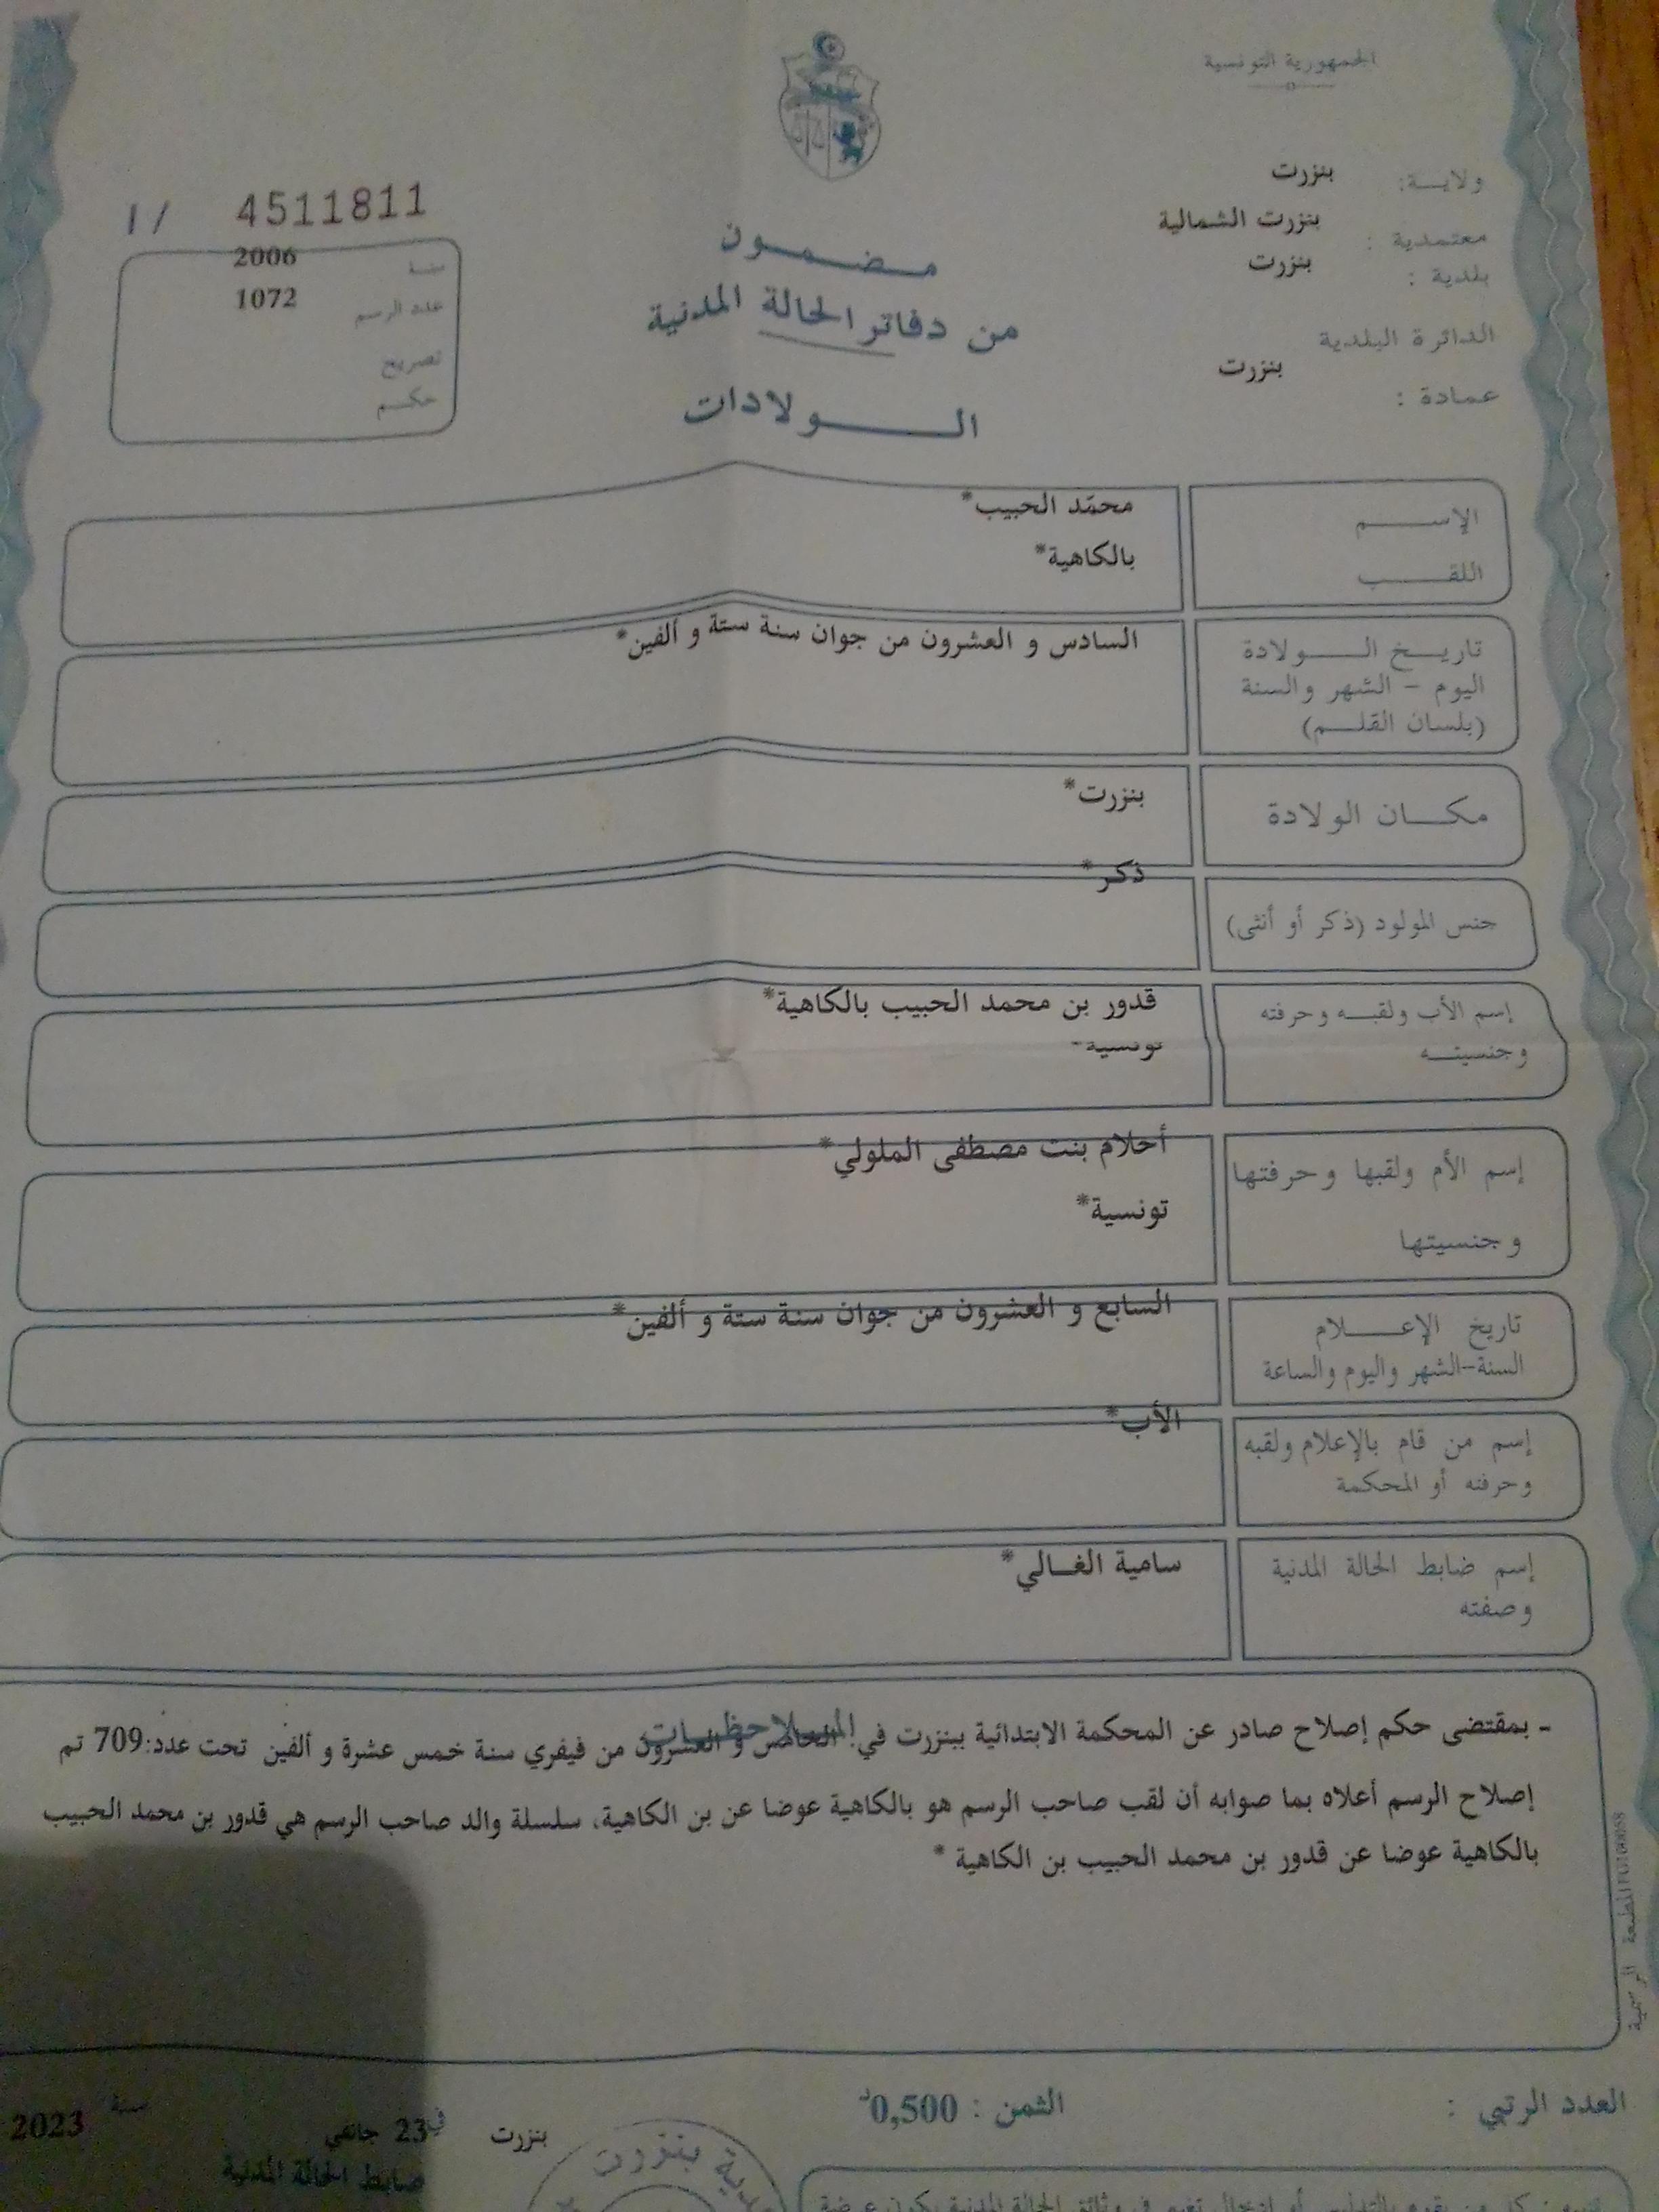 الجمهورية التونسية
ولايـــة: بنزرت
معتمدية : بنزرت الشمالية
بلدية : بنزرت
الدائرة البلدية
عمادة : بنزرت
مـضـمـون
من دفاتر الحالة المدنية
الـــولادات
1/ 4511811
سنة 2006
عدد الرسم 1072
تصريح
حكم
الإســـم محمّد الحبيب*
اللقـــب بالكاهية*
تاريـــخ الـــولادة السادس و العشرون من جوان سنة ستة و ألفين*
اليوم - الشهر والسنة
(بلسان القلـــم)
مكـــان الولادة بنزرت*
جنس المولود (ذكر أو أنثى) ذكر*
إسم الأب ولقبـــه وحرفته قدور بن محمد الحبيب بالكاهية*
وجنسيتـــه تونسية*
إسم الأم ولقبها وحرفتها أحلام بنت مصطفى الملولي*
وجنسيتها تونسية*
تاريخ الإعـــلام السابع و العشرون من جوان سنة ستة و ألفين*
السنة-الشهر واليوم والساعة
إسم من قام بالإعلام ولقبه الأب*
وحرفته أو المحكمة
إسم ضابط الحالة المدنية سامية الغـالي*
وصفته
المـــلاحظـــات
- بمقتضى حكم إصلاح صادر عن المحكمة الابتدائية ببنزرت في: الخامس و العشرون من فيفري سنة خمس عشرة و ألفين تحت عدد:709 تم
إصلاح الرسم أعلاه بما صوابه أن لقب صاحب الرسم هو بالكاهية عوضا عن بن الكاهية، سلسلة والد صاحب الرسم هي قدور بن محمد الحبيب
بالكاهية عوضا عن قدور بن محمد الحبيب بن الكاهية *
المطبعة الرسمية
العدد الرتبي :
الثمن : 0,500د
بنزرت في 23 جانفي سنة 2023
ضابط الحالة المدنية
بنزرت